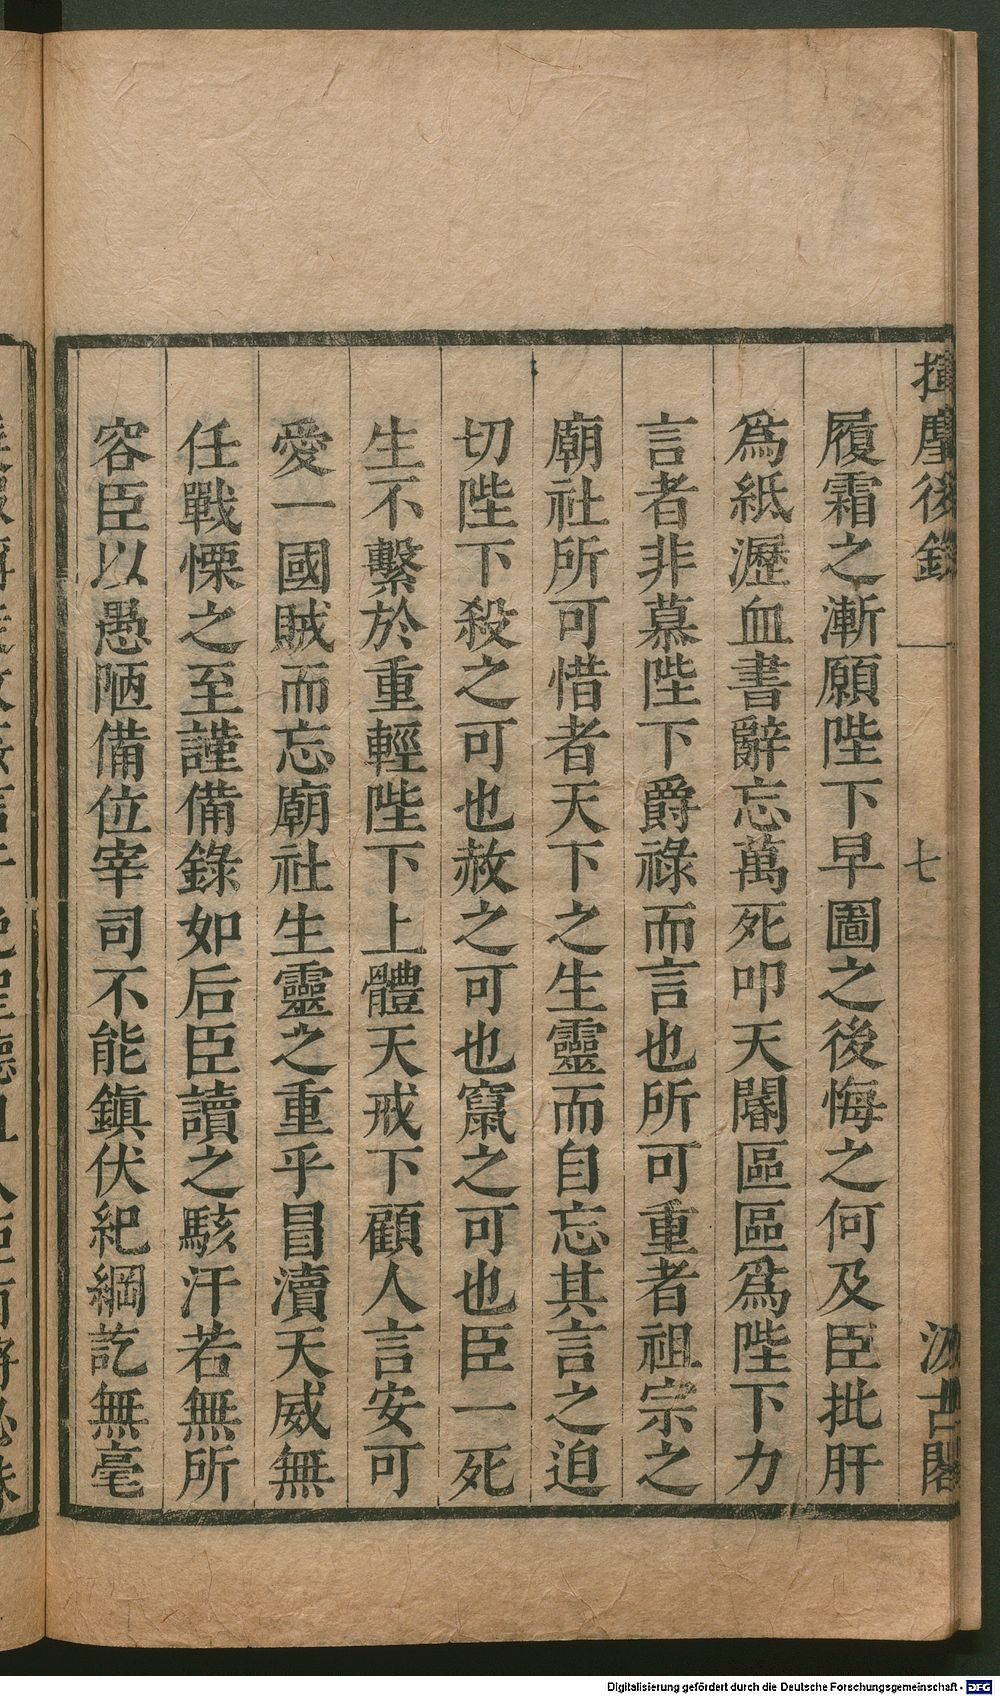 揮麈後錄 一 七 汲古閣
履霜之漸願陛下早圖之後悔之何及臣批肝
爲紙瀝血書辭忘萬死叩天閽區區爲陛下力
言者非慕陛下爵祿而言也所可重者祖宗之
廟社所可惜者天下之生靈而自忘其言之迫
切陛下殺之可也赦之可也竄之可也臣一死
生不繫於重輕陛下上體天戒下顧人言安可
愛一國賊而忘廟社生靈之重乎冒瀆天威無
任戰慄之至謹備錄如后臣讀之駭汗若無所
容臣以愚陋備位宰司不能鎮伏紀綱訖無毫
Digitalisierung gefördert durch die Deutsche Forschungsgemeinschaft - DFG